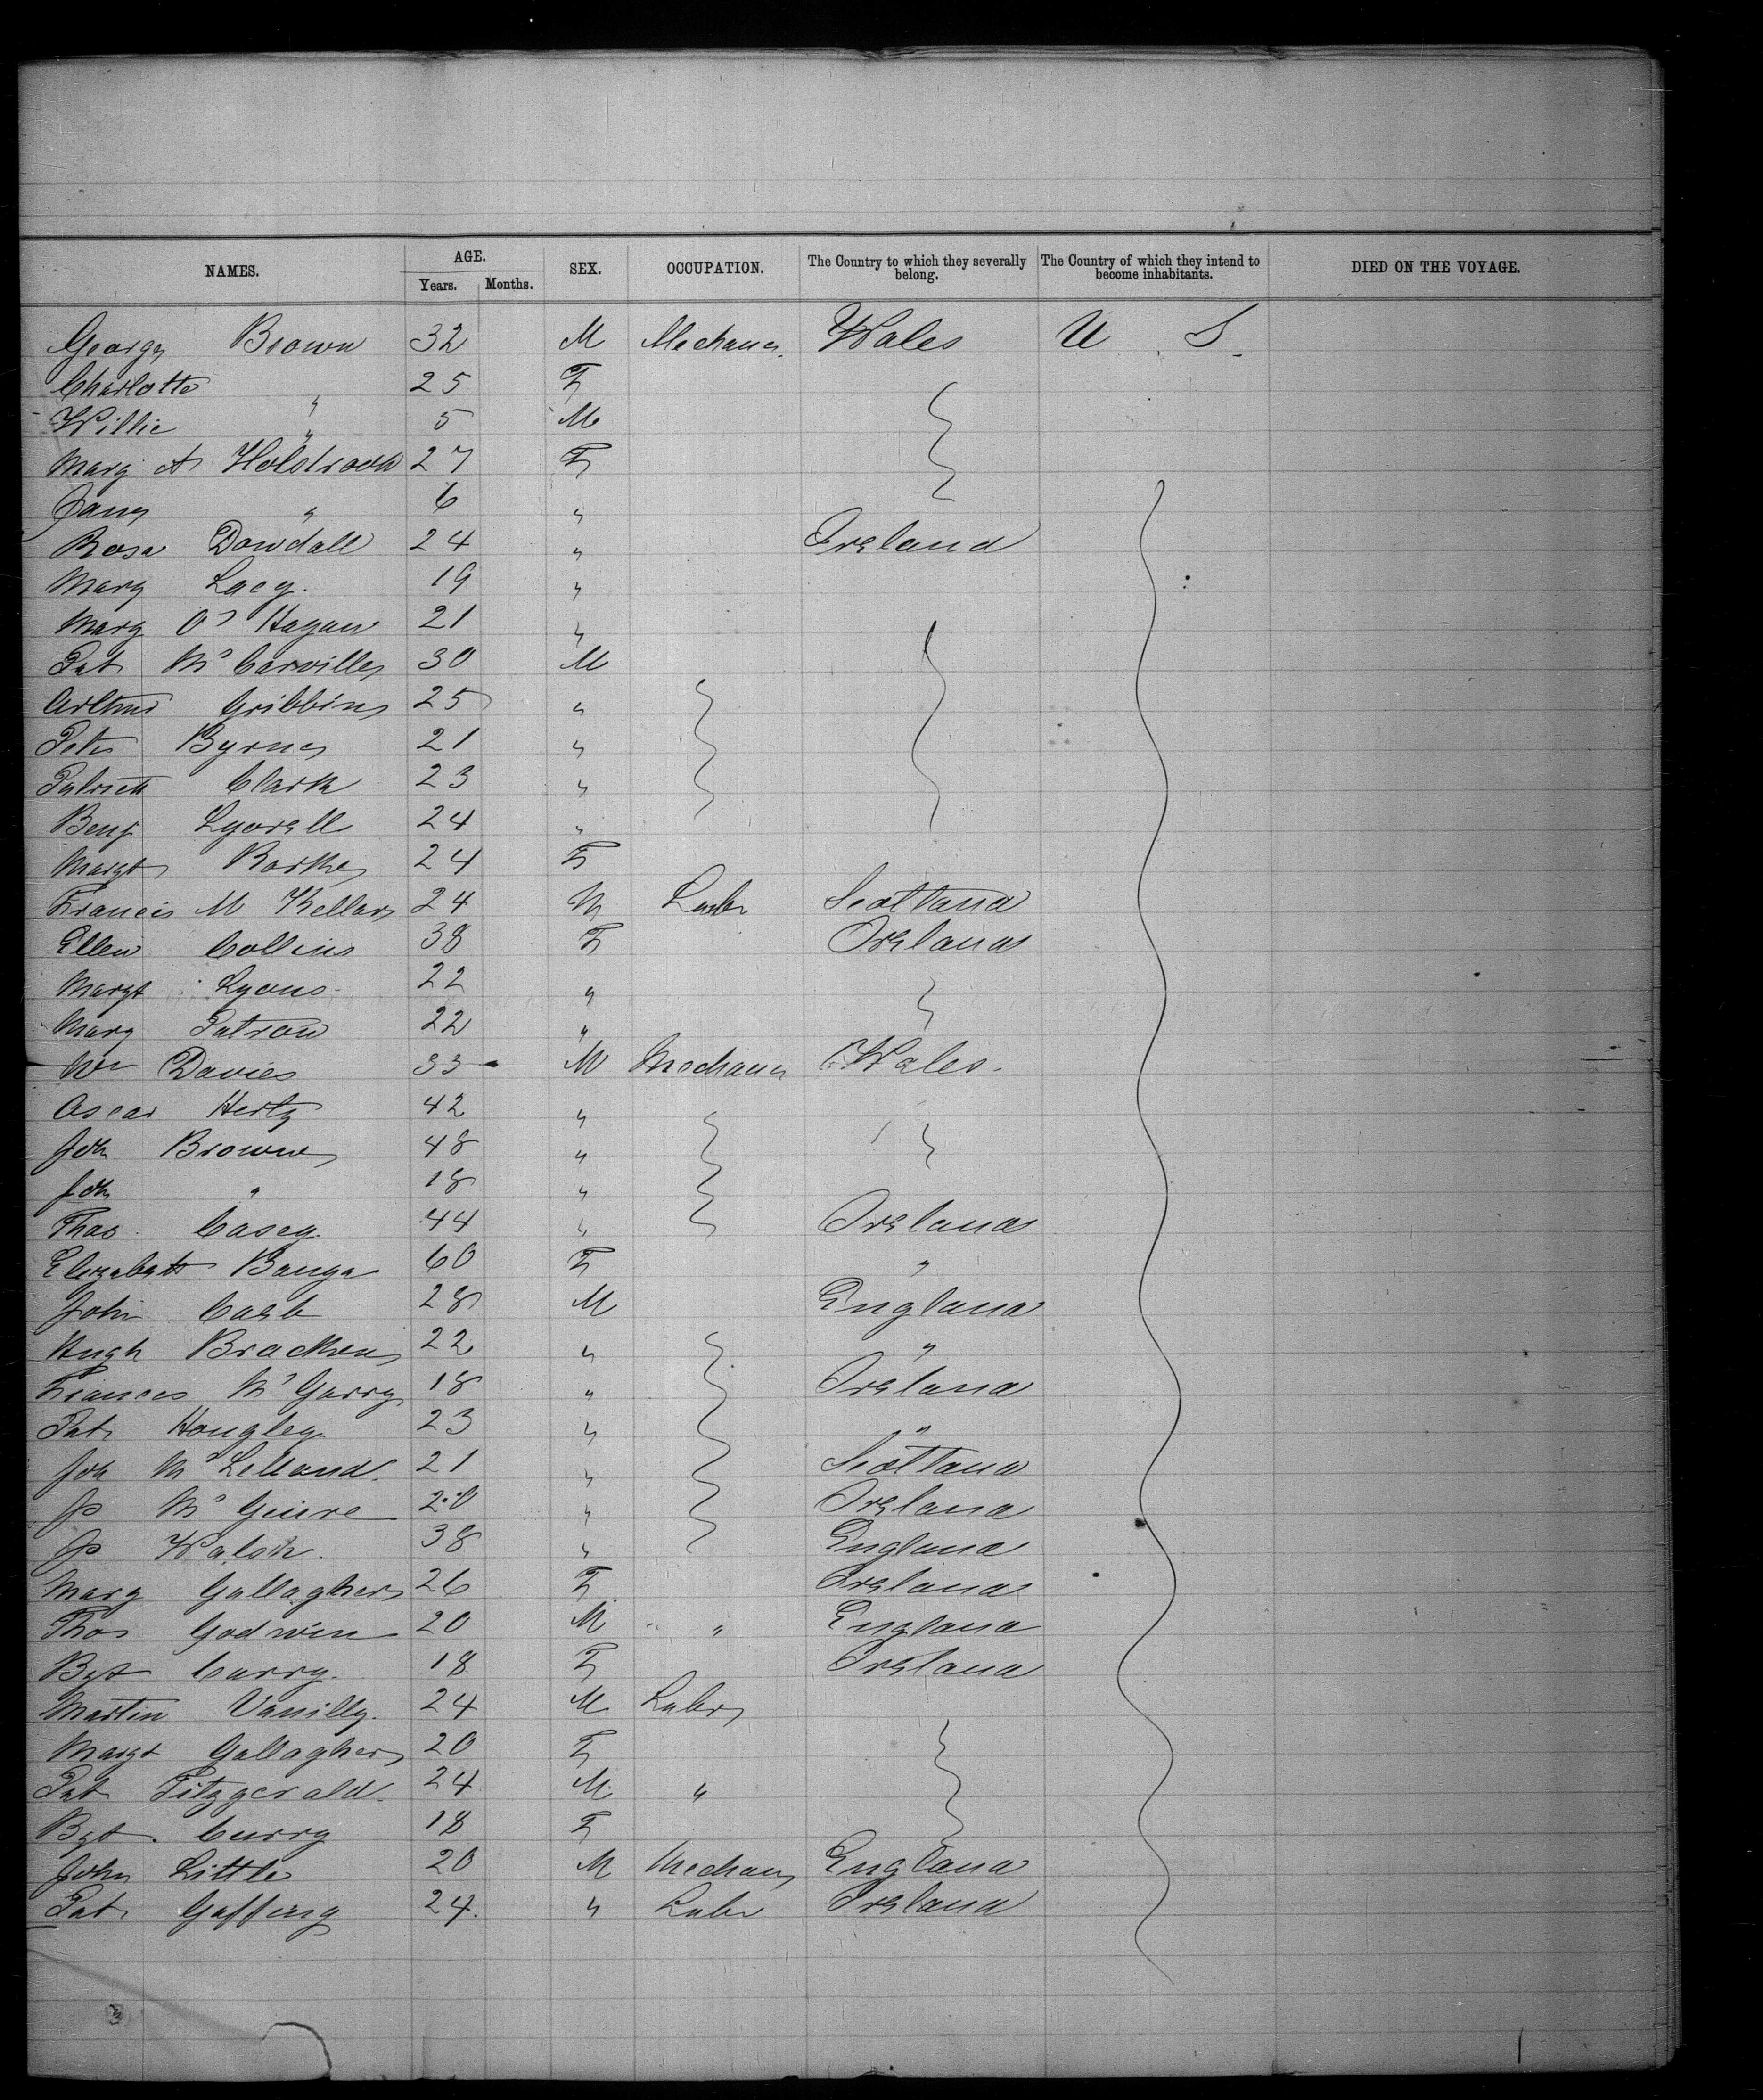 NAMES. AGE. Years. Months. SEX. OCCUPATION. The Country to which they severally belong. The Country of which they intend to become inhabitants. DIED ON THE VOYAGE.
George Brown 32 M Mechanic Wales U S
Charlotte " 25 F
Willie " 5 M
Mary A Holdbrook 27 F
Jane " 6 "
Rosa Dowdall 24 " Ireland
Mary Lacy. 19 "
Mary O'Hagan 21 "
Pat McCarville 30 M
Arthur Gribbins 25 "
Peter Byrnes 21 "
Patrick Clark 23 "
Benj 24 "
Margt Rorke 24 F
Francis M Kellar 24 M Labr Scotland
Ellen Collins 38 F Ireland
Margt Lyons 22 "
Mary Patrow 22 "
Wm Davies 33 M Mechanic Wales.
Oscar Hertz 42 "
Joh Brown 48 "
Joh " 18 "
Thos. Casey 44 " Ireland
Elizabeth Banga 60 F "
John 28 M England
Hugh Bracken 22 " "
Frances McGarry 18 " Ireland
Pat Hougley 23 " "
Joh McLelland. 21 " Scotland
Jo McGuire 20 " Ireland
Jo Walsh. 38 " England
Mary Gallagher 26 F Ireland
Thos Godwin 20 M " England
Bgt Curry. 18 F Ireland
Martin Vanilly. 24 M Labr
Margt Gallagher 20 F
Pat Fitzgerald. 24 M "
Bgt. Curry 18 F
John Little 20 M Mechan England
Pat Gaffeny 24. " Labr Ireland